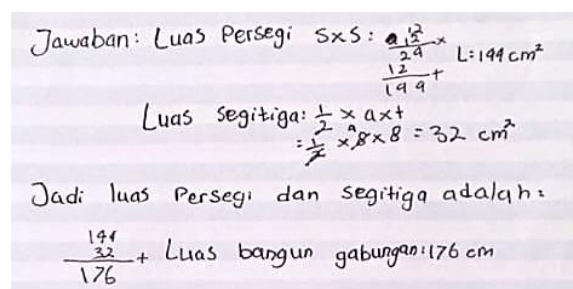 Jawaban: Luas Persegi SxS: 12
12 x
24
12 +
144 L: 144 cm²
Luas Segitiga: 1/2 x axt
= 1/2 x 8 x 8 = 32 cm²
Jadi luas Persegi dan segitiga adalah:
144
32 +
176 Luas bangun gabungan: 176 cm